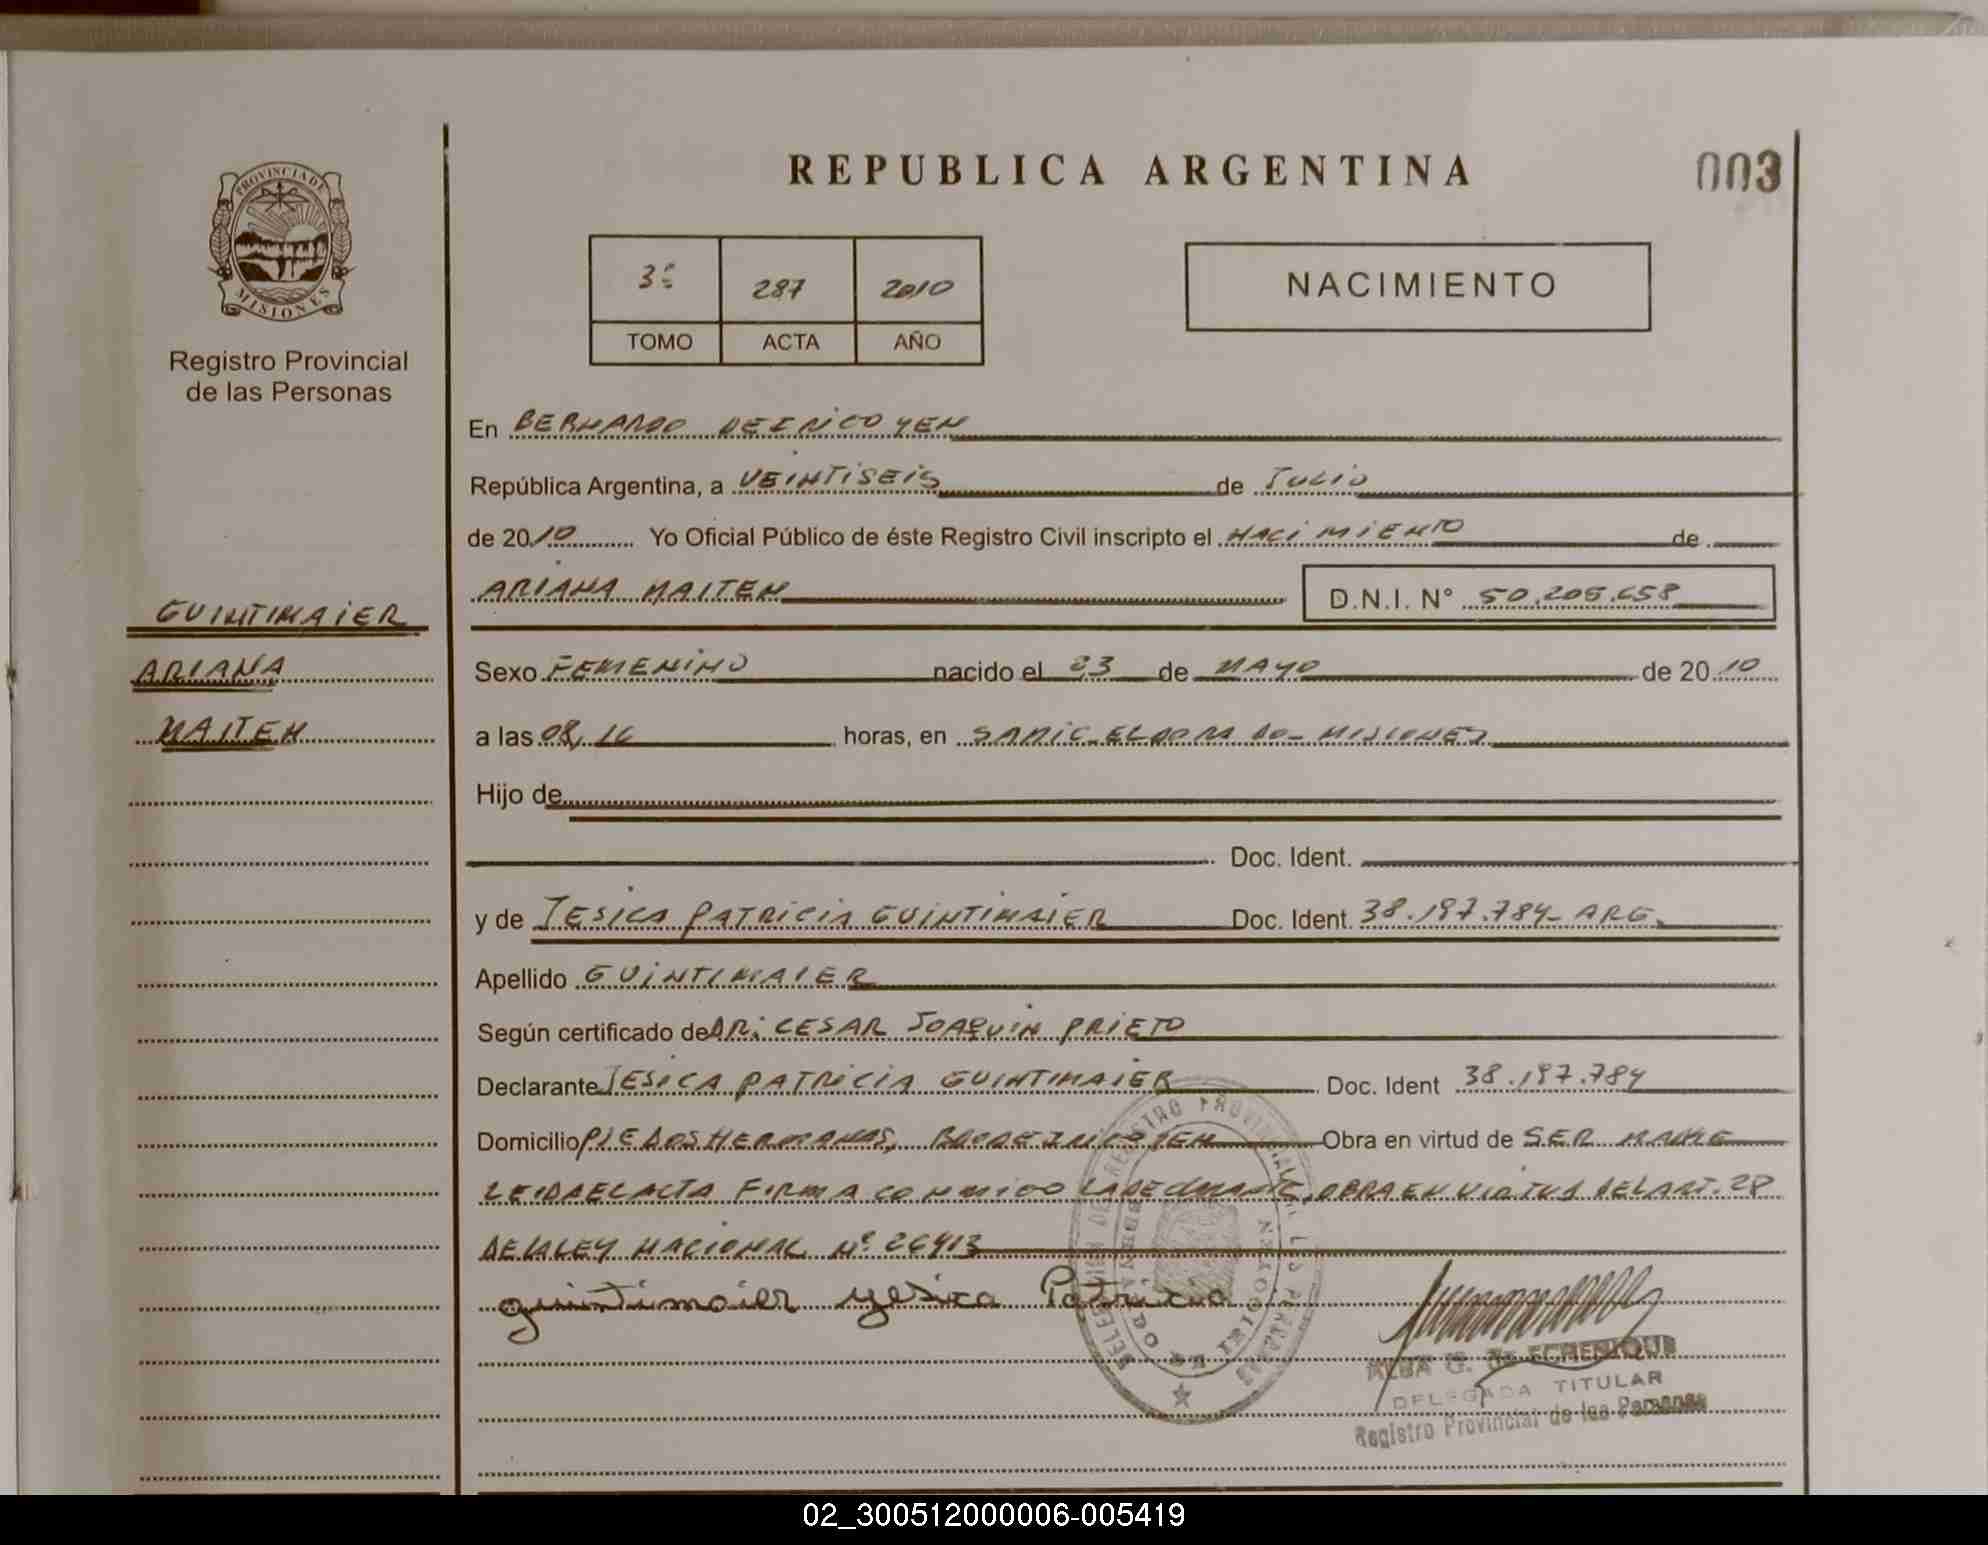 REPUBLICA ARGENTINA
003
PROVINCIA DE
MISIONES
Registro Provincial
de las Personas
3º 287 2010
TOMO ACTA AÑO
NACIMIENTO
En BERNARDO DE IRIGOYEN
República Argentina, a VEINTISEIS de JULIO
de 2010 Yo Oficial Público de éste Registro Civil inscripto el NACIMIENTO de
ARIANA MAITEN D.N.I. Nº 50.205.658
GUINTIMAIER
ARIANA
MAITEN
Sexo FEMENINO nacido el 23 de MAYO de 2010
a las 08, horas, en ELDORADO - MISIONES
Hijo de
Doc. Ident.
y de JESICA PATRICIA GUINTIMAIER Doc. Ident. 38.197.784- ARG.
Apellido GUINTIMAIER
Según certificado de DR. CESAR JOAQUIN PRIETO
Declarante JESICA PATRICIA GUINTIMAIER Doc. Ident 38.197.784
Domicilio PJE DOS HERMANAS, BDO DE IRIGOYEN Obra en virtud de SER MADRE
LEIDA EL ACTA FIRMA CONMIGO LA DECLARANTE, OBRA EN VIRTUD DEL ART. 28
DE LA LEY NACIONAL Nº 26413
guintimaier yesica Patricia
ALBA G. de ECHENIQUE
DELEGADA TITULAR
Registro Provincial de las Personas
02_300512000006-005419